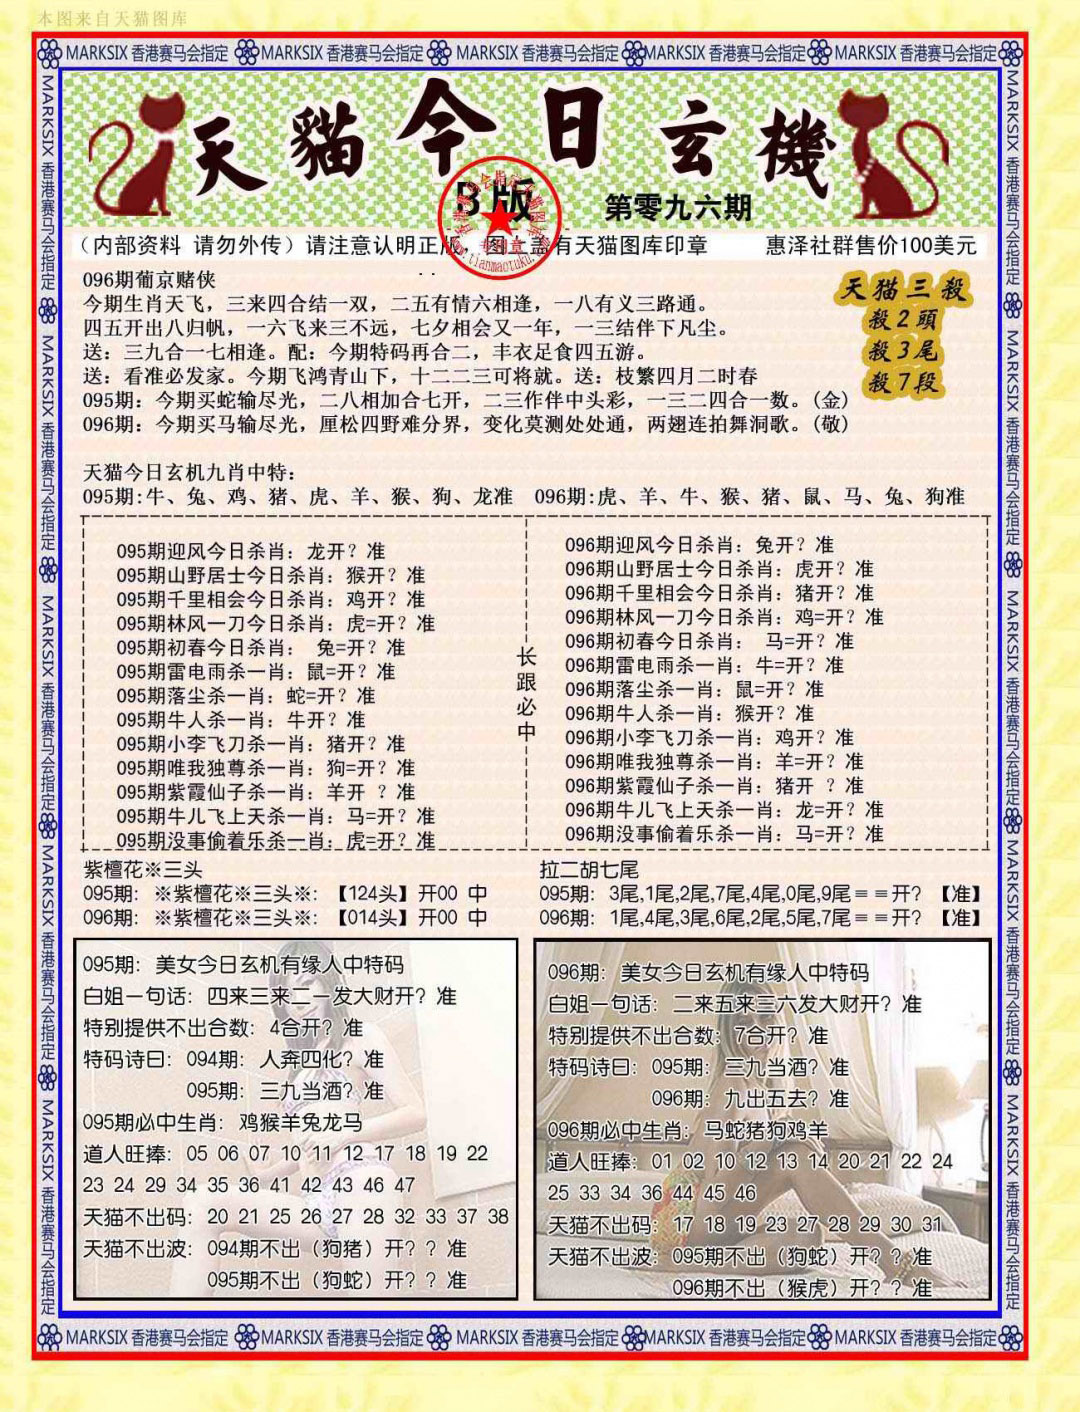 本图来自天猫图库
MARKSIX 香港赛马会指定 MARKSIX 香港赛马会指定 MARKSIX 香港赛马会指定 MARKSIX 香港赛马会指定 MARKSIX 香港赛马会指定
天貓今日玄機
B版
第零九六期
（内部资料 请勿外传）请注意认明正版，图上盖有天猫图库印章 惠泽社群售价100美元
096期葡京赌侠
今期生肖天飞，三来四合结一双，二五有情六相逢，一八有义三路通。
四五开出八归帆，一六飞来三不远，七夕相会又一年，一三结伴下凡尘。
送：三九合一七相逢。配：今期特码再合二，丰衣足食四五游。
送：看准必发家。今期飞鸿青山下，十二二三可将就。送：枝繁四月二时春
095期：今期买蛇输尽光，二八相加合七开，二三作伴中头彩，一三二四合一数。(金)
096期：今期买马输尽光，厘松四野难分界，变化莫测处处通，两翅连拍舞洞歌。(敬)
天猫三殺
殺2頭
殺3尾
殺7段
天猫今日玄机九肖中特：
095期:牛、兔、鸡、猪、虎、羊、猴、狗、龙准 096期:虎、羊、牛、猴、猪、鼠、马、兔、狗准
095期迎风今日杀肖：龙开？准
095期山野居士今日杀肖：猴开？准
095期千里相会今日杀肖：鸡开？准
095期林风一刀今日杀肖：虎=开？准
095期初春今日杀肖： 兔=开？准
095期雷电雨杀一肖：鼠=开？准
095期落尘杀一肖：蛇=开？准
095期牛人杀一肖：牛开？准
095期小李飞刀杀一肖：猪开？准
095期唯我独尊杀一肖：狗=开？准
095期紫霞仙子杀一肖：羊开 ？准
095期牛儿飞上天杀一肖：马=开？准
095期没事偷着乐杀一肖：虎=开？准
长跟必中
096期迎风今日杀肖：兔开？准
096期山野居士今日杀肖：虎开？准
096期千里相会今日杀肖：猪开？准
096期林风一刀今日杀肖：鸡=开？准
096期初春今日杀肖： 马=开？准
096期雷电雨杀一肖：牛=开？准
096期落尘杀一肖：鼠=开？准
096期牛人杀一肖：猴开？准
096期小李飞刀杀一肖：鸡开？准
096期唯我独尊杀一肖：羊=开？准
096期紫霞仙子杀一肖：猪开 ？准
096期牛儿飞上天杀一肖：龙=开？准
096期没事偷着乐杀一肖：马=开？准
紫檀花※三头
095期：※紫檀花※三头※：【124头】开00 中
096期：※紫檀花※三头※：【014头】开00 中
拉二胡七尾
095期：3尾,1尾,2尾,7尾,4尾,0尾,9尾==开？【准】
096期：1尾,4尾,3尾,6尾,2尾,5尾,7尾==开？【准】
095期：美女今日玄机有缘人中特码
白姐一句话：四来三来二一发大财开？准
特别提供不出合数：4合开？准
特码诗曰：094期：人奔四化？准
095期：三九当酒？准
095期必中生肖：鸡猴羊兔龙马
道人旺捧：05 06 07 10 11 12 17 18 19 22
23 24 29 34 35 36 41 42 43 46 47
天猫不出码：20 21 25 26 27 28 32 33 37 38
天猫不出波：094期不出（狗猪）开？？准
095期不出（狗蛇）开？？准
096期：美女今日玄机有缘人中特码
白姐一句话：二来五来三六发大财开？准
特别提供不出合数：7合开？准
特码诗曰：095期：三九当酒？准
096期：九出五去？准
096期必中生肖：马蛇猪狗鸡羊
道人旺捧：01 02 10 12 13 14 20 21 22 24
25 33 34 36 44 45 46
天猫不出码：17 18 19 23 27 28 29 30 31
天猫不出波：095期不出（狗蛇）开？？准
096期不出（猴虎）开？？准
MARKSIX 香港赛马会指定 MARKSIX 香港赛马会指定 MARKSIX 香港赛马会指定 MARKSIX 香港赛马会指定 MARKSIX 香港赛马会指定